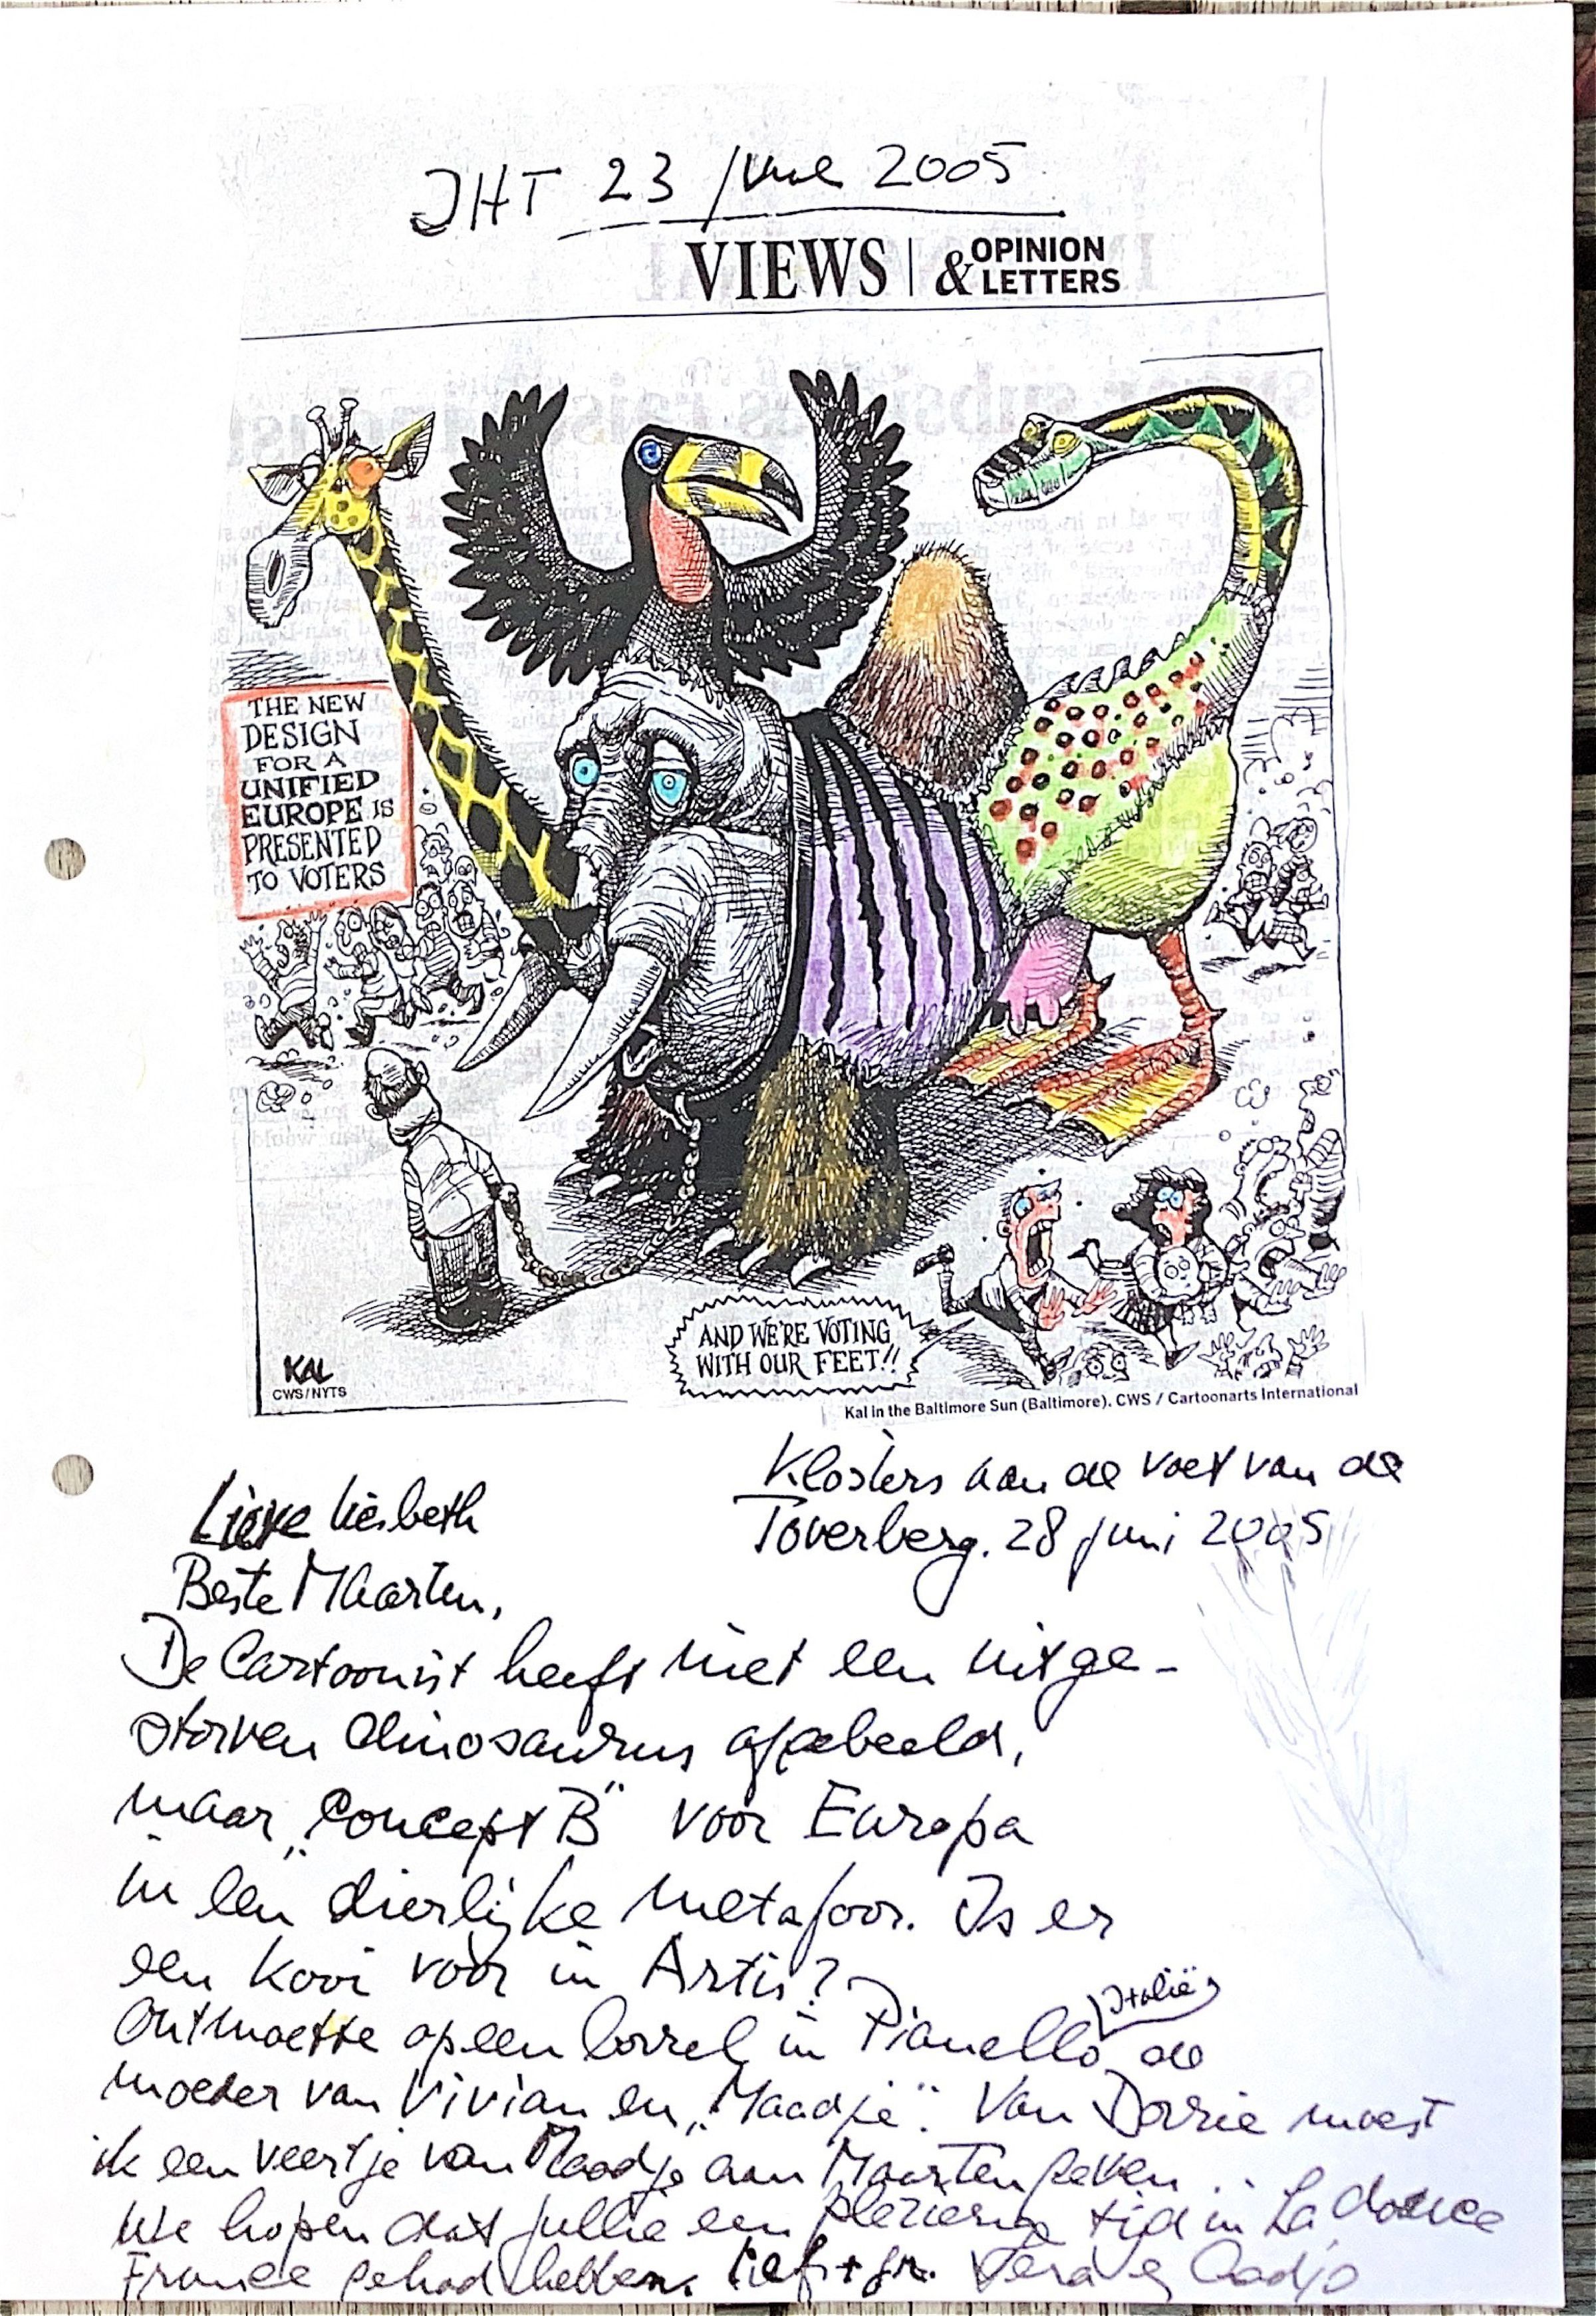 IHT 23 June 2005
VIEWS | & OPINION LETTERS
THE NEW
DESIGN
FOR A
UNIFIED
EUROPE IS
PRESENTED
TO VOTERS
AND WE'RE VOTING
WITH OUR FEET!!
KAL
CWS/NYTS
Kal in the Baltimore Sun (Baltimore). CWS / Cartoonarts International
Klosters aan de voet van de
Toverberg. 28 juni 2005
Lieve Liesbeth
Beste Maarten,
De Cartoonist heeft niet een uitge-
storven dinosaurus afgebeeld,
maar „Concept B" voor Europa
in een dierlijke metafoor. Is er
een kooi voor in Artis?
Ontmoette op een borrel in Pianello (Italië) de
moeder van Vivian en „Maadje". Van Dorrie moest
ik een veertje van Maadje aan Maarten geven.
We hopen dat jullie een plezierige tijd in La douce
France gehad hebben. Lief + gr.